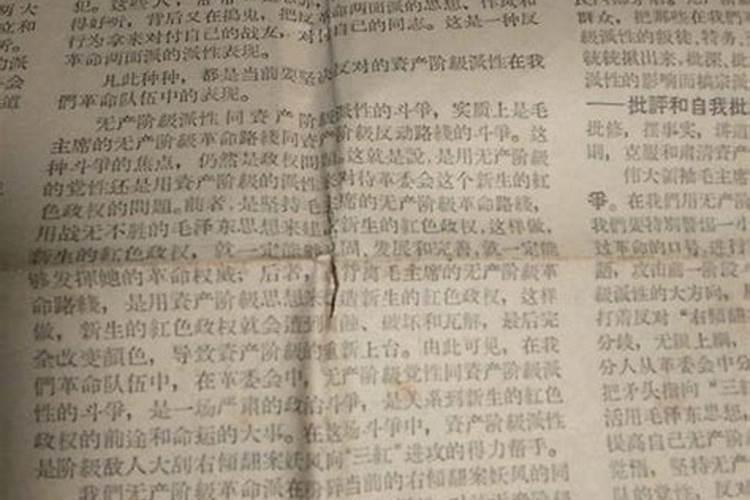 得好听，背后又在捣鬼，把反革命两面派的思想、作风和
行为拿来对付自己的战友，对付自己的同志。这是一种反
革命两面派的派性表现。
凡此种种，都是当前要坚决反对的資产阶級派性在我
們革命队伍中的表现。
无产阶級派性同資产阶級派性的斗爭，实质上是毛
主席的无产阶級革命路綫同資产阶級反动路綫的斗爭。这
种斗爭的焦点，仍然是政权問題，这就是說，是用无产阶級
的党性还是用資产阶級的派性来对待革委会这个新生的紅
色政权的問題。前者，是坚持毛主席的无产阶級革命路綫，
用战无不胜的毛泽东思想来建設新生的紅色政权，这样做，
新生的紅色政权，就一定能够巩固、发展和完善，就一定能
够发揮她的革命权威；后者，背离毛主席的无产阶級革
命路綫，是用資产阶級思想来改造新生的紅色政权，这样
做，新生的紅色政权就会遭到腐蝕、破坏和瓦解，最后完
全改变顏色，导致資产阶級的重新上台。由此可见，在我
們革命队伍中，在革委会中，无产阶級党性同資产阶級派
性的斗爭，是一场严肃的政治斗爭，是关系到新生的紅色
政权的前途和命运的大事。在这场斗爭中，資产阶級派性
是阶級敌人大刮右傾翻案妖风向“三紅”进攻的得力帮手。
我們无产阶級革命派在粉碎当前的右傾翻案妖风的同
級派性的叛徒、特务、
統統揪出来，批深、批
派性的影响而搞宗派
——批評和自我批
批修，摆事实，讲道
則，克服和肃清資产
伟大領袖毛主席
爭。在我們用无产
我們要特別警惕一小
过革命的口号，进行
級派性的大方向，
打着反对“右傾翻
分歧，无限上綱，
分人从革委会中分
把矛头指向“三
活用毛泽东思想
提高自己无产阶
觉悟，坚持无产